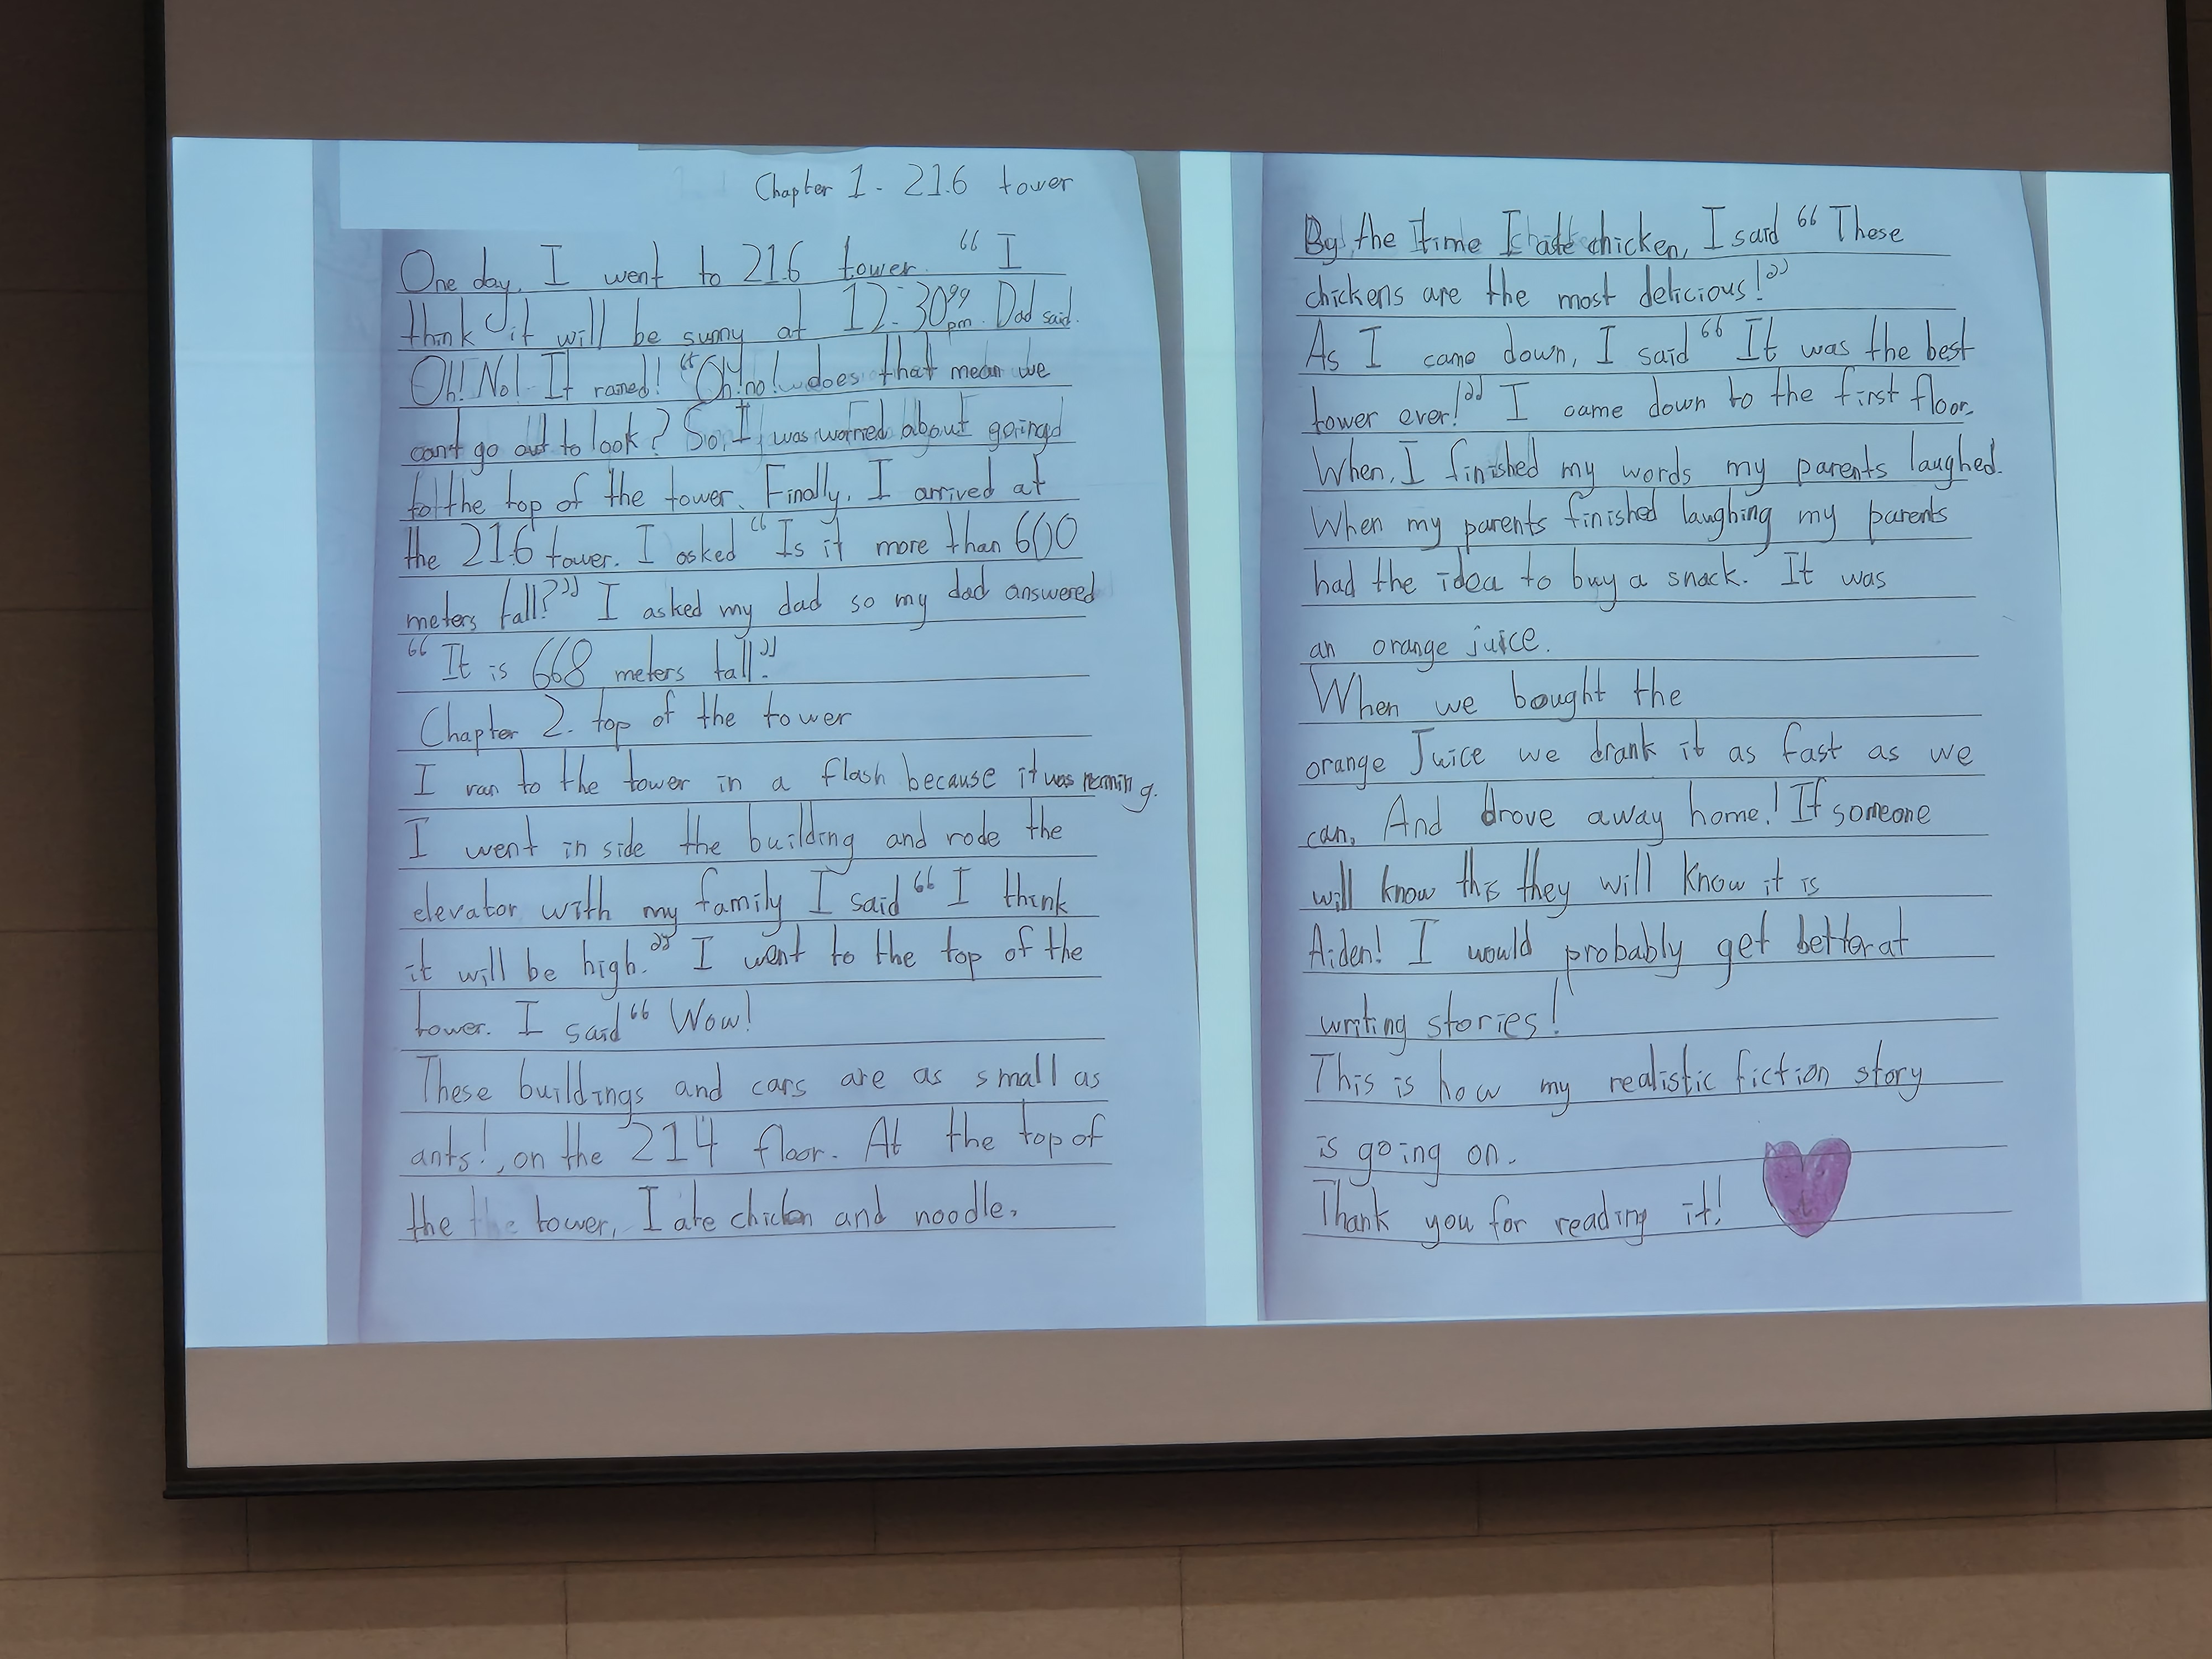 Chapter 1. 216 tower
One day, I went to 216 tower. “I
think it will be sunny at 12:30” pm. Dad said.
Oh! No! It rained! “Oh! no! does that mean we
can't go out to look? So, I was worried about going
to the top of the tower. Finally, I arrived at
the 216 tower. I asked “Is it more than 600
meters tall?” I asked my dad so my dad answered
“It is 668 meters tall.”
Chapter 2. top of the tower
I ran to the tower in a flash because it was
I went in side the building and rode the
elevator with my family I said “I think
it will be high.” I went to the top of the
tower. I said “Wow!
These buildings and cars are as small as
ants!, on the 214 floor. At the top of
the the tower, I ate chicken and noodle.
By the time I ate chicken, I said “These
chickens are the most delicious!”
As I came down, I said “It was the best
tower ever!” I came down to the first floor.
When, I finished my words my parents laughed.
When my parents finished laughing my parents
had the idea to buy a snack. It was
an orange juice.
When we bought the
orange Juice we drank it as fast as we
can. And drove away home! If someone
will know this they will know it is
Aiden! I would probably get better at
writing stories!
This is how my realistic fiction story
is going on.
Thank you for reading it!